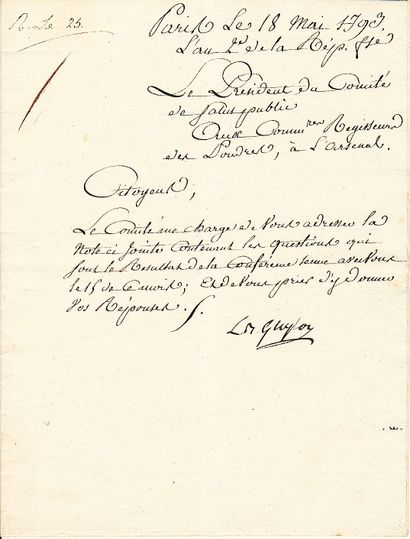 R. Le 23.
Paris Le 18 Mai 1793
L'an 2e de la Rép. fse
Le Président du Comité
de Salut public
Aux Commres Regisseurs
des Poudres, à L'arsenal.
Citoyens,
Le Comité me charge de Vous adresser la
Note ci Jointe contenant les questions qui
sont le Resultat de la Conférence tenue avec Vous
le 15 de Ce mois; Et de Vous prier d'y donner
Vos Réponses.